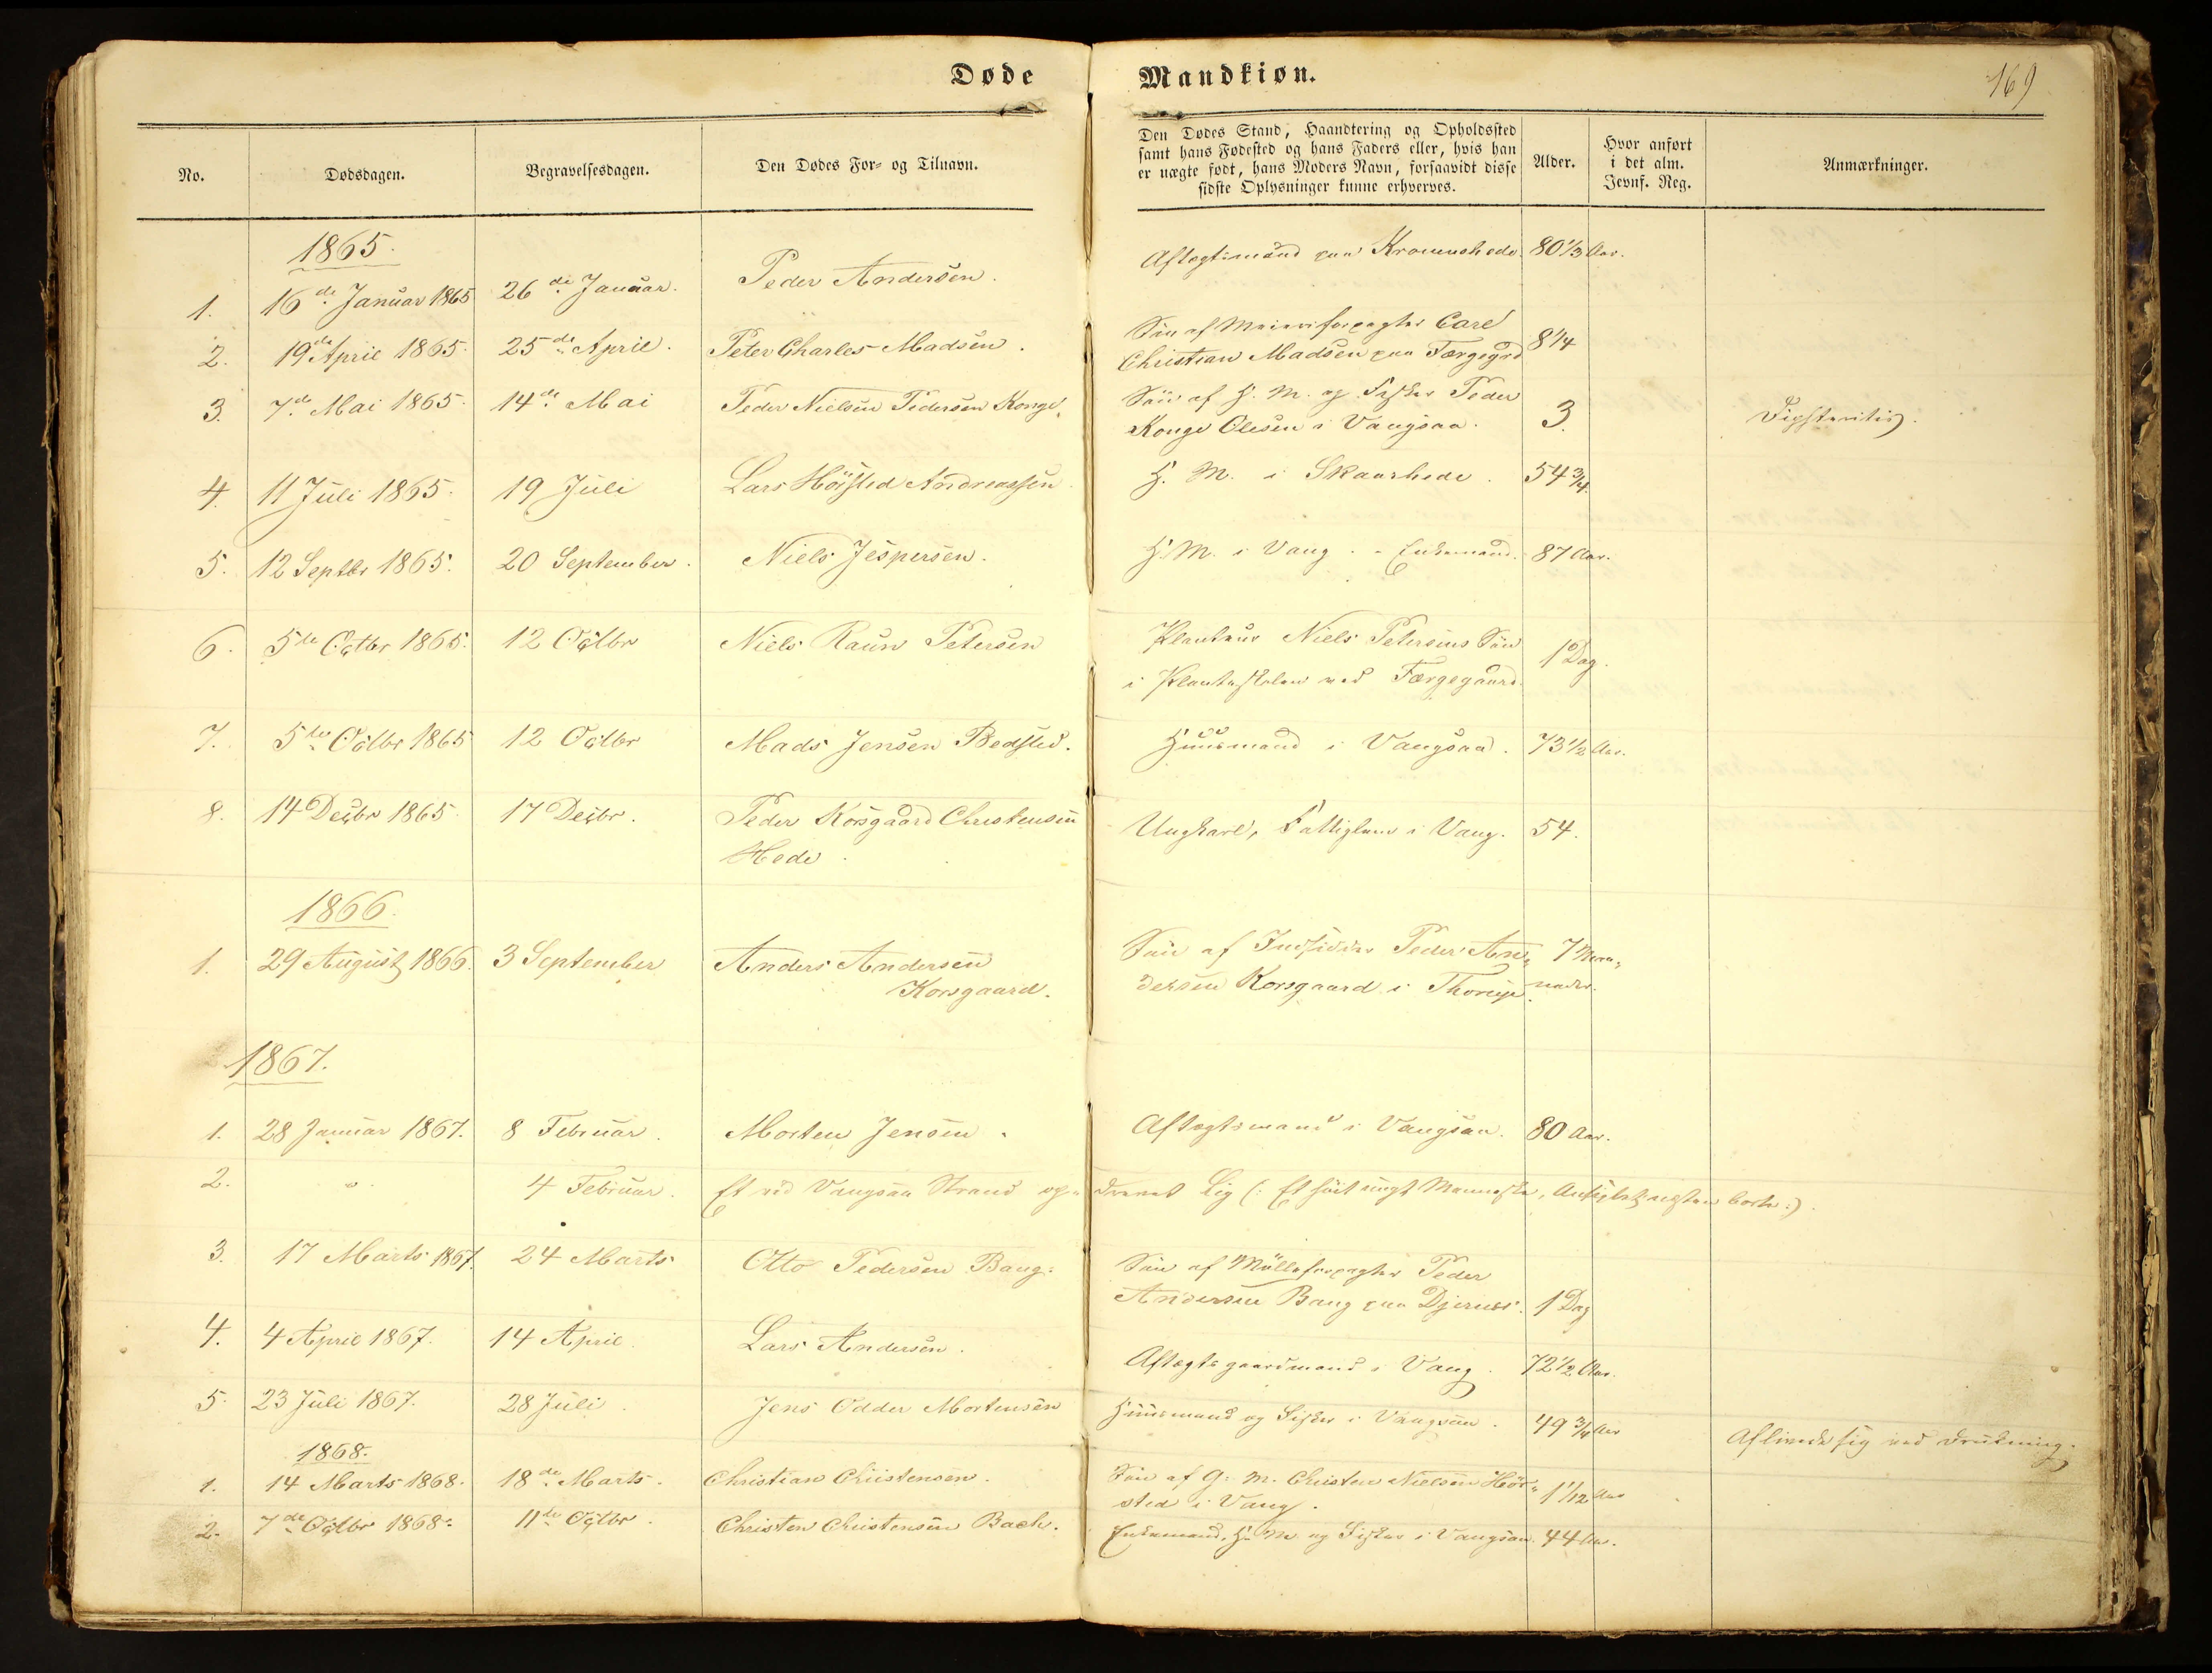 Døde Mandkiøn.
169
No.
Dødsdagen.
Begravelsesdagen.
Den Dødes For- og Tilnavn.
Den Dødes Stand, Haandtering og Opholdssted
samt hans Fødested og hans Faders eller, hvis han
er uægte født, hans Moders Navn, forsaavidt disse
sidste Oplysninger kunne erhverves.
Alder.
Hvor anført
i det alm.
Jevnf. Reg.
Anmærkninger.
1865.
1. 16de Januar 1865 26de Januar. Peder Andersen. Aftægtsmand paa 80 1/3 Aar.
2. 19de April 1865. 25de April. Peter Charles Madsen. Søn af Meieriforpagter Carl 8 1/4
Christian Madsen paa Færgegrd
3. 7de Mai 1865. 14de Mai Peder Nielsen Pedersen Konge. Søn af H. M. og Fisker Peder 3.
Konge Olesen i Vangsaa.
4. 11 Juli 1865. 19 Juli Lars Höisted Andreassen H. M. i Skaarhede. 54 3/4
5. 12 Septbr 1865. 20 September. Niels Jespersen. H. M. i Vang. - Enkemand. 87 Aar.
6. 5te Octbr 1865. 12 Octbr Niels Raun Petersen Planteur Niels Petersens Søn 1 Dag.
i Planteskolen ved Færgegaard.
7. 5te Octbr 1865 12 Octbr Mads Jensen Bedsted. Huusmand i Vangsaa. 73 1/2 Aar.
8. 14 Decbr 1865 17 Decbr. Peder Korsgaard Christensen Ungkarl, Fattiglem i Vang. 54.
Hede.
1866.
1. 29 August 1866. 3 September Anders Andersen Søn af Indsidder Peder An- 7 Maa-
Korsgaard. dersen Korsgaard i Thorup. neder.
1867.
1. 28 Januar 1867. 8 Februar. Morten Jensen. Aftægtsmand i Vangsaa. 80 Aar.
2. " 4 Februar. Et ved Vangsaa Strand op- drevet Lig (: Et Menneske, Ansigtet næsten borte:).
3. 17 Marts 1867. 24 Marts Otto Pedersen Bang. Søn af Mölleforpagter Peder
Andersen Bang paa 1 Dag
4. 4 April 1867. 14 April Lars Andersen. Aftægts gaardmand i Vang. 72 1/2 Aar.
5. 23 Juli 1867. 28 Juli. Jens Odder Mortensen Huusmand og Fisker i Vangsaa. 49 3/4 Aar Aflivede sig ved Drukning.
1868.
1. 14 Marts 1868. 18de Marts. Christian Christensen. Søn af G. M. Christen Nielsen Hör- 1 1/12 Aar
sted i Vang.
2. 7de Octbr 1868. 11de Octbr. Christen Christensen Bach. Enkemand, H. M. og Fisker i Vangsaa. 44 Aar.